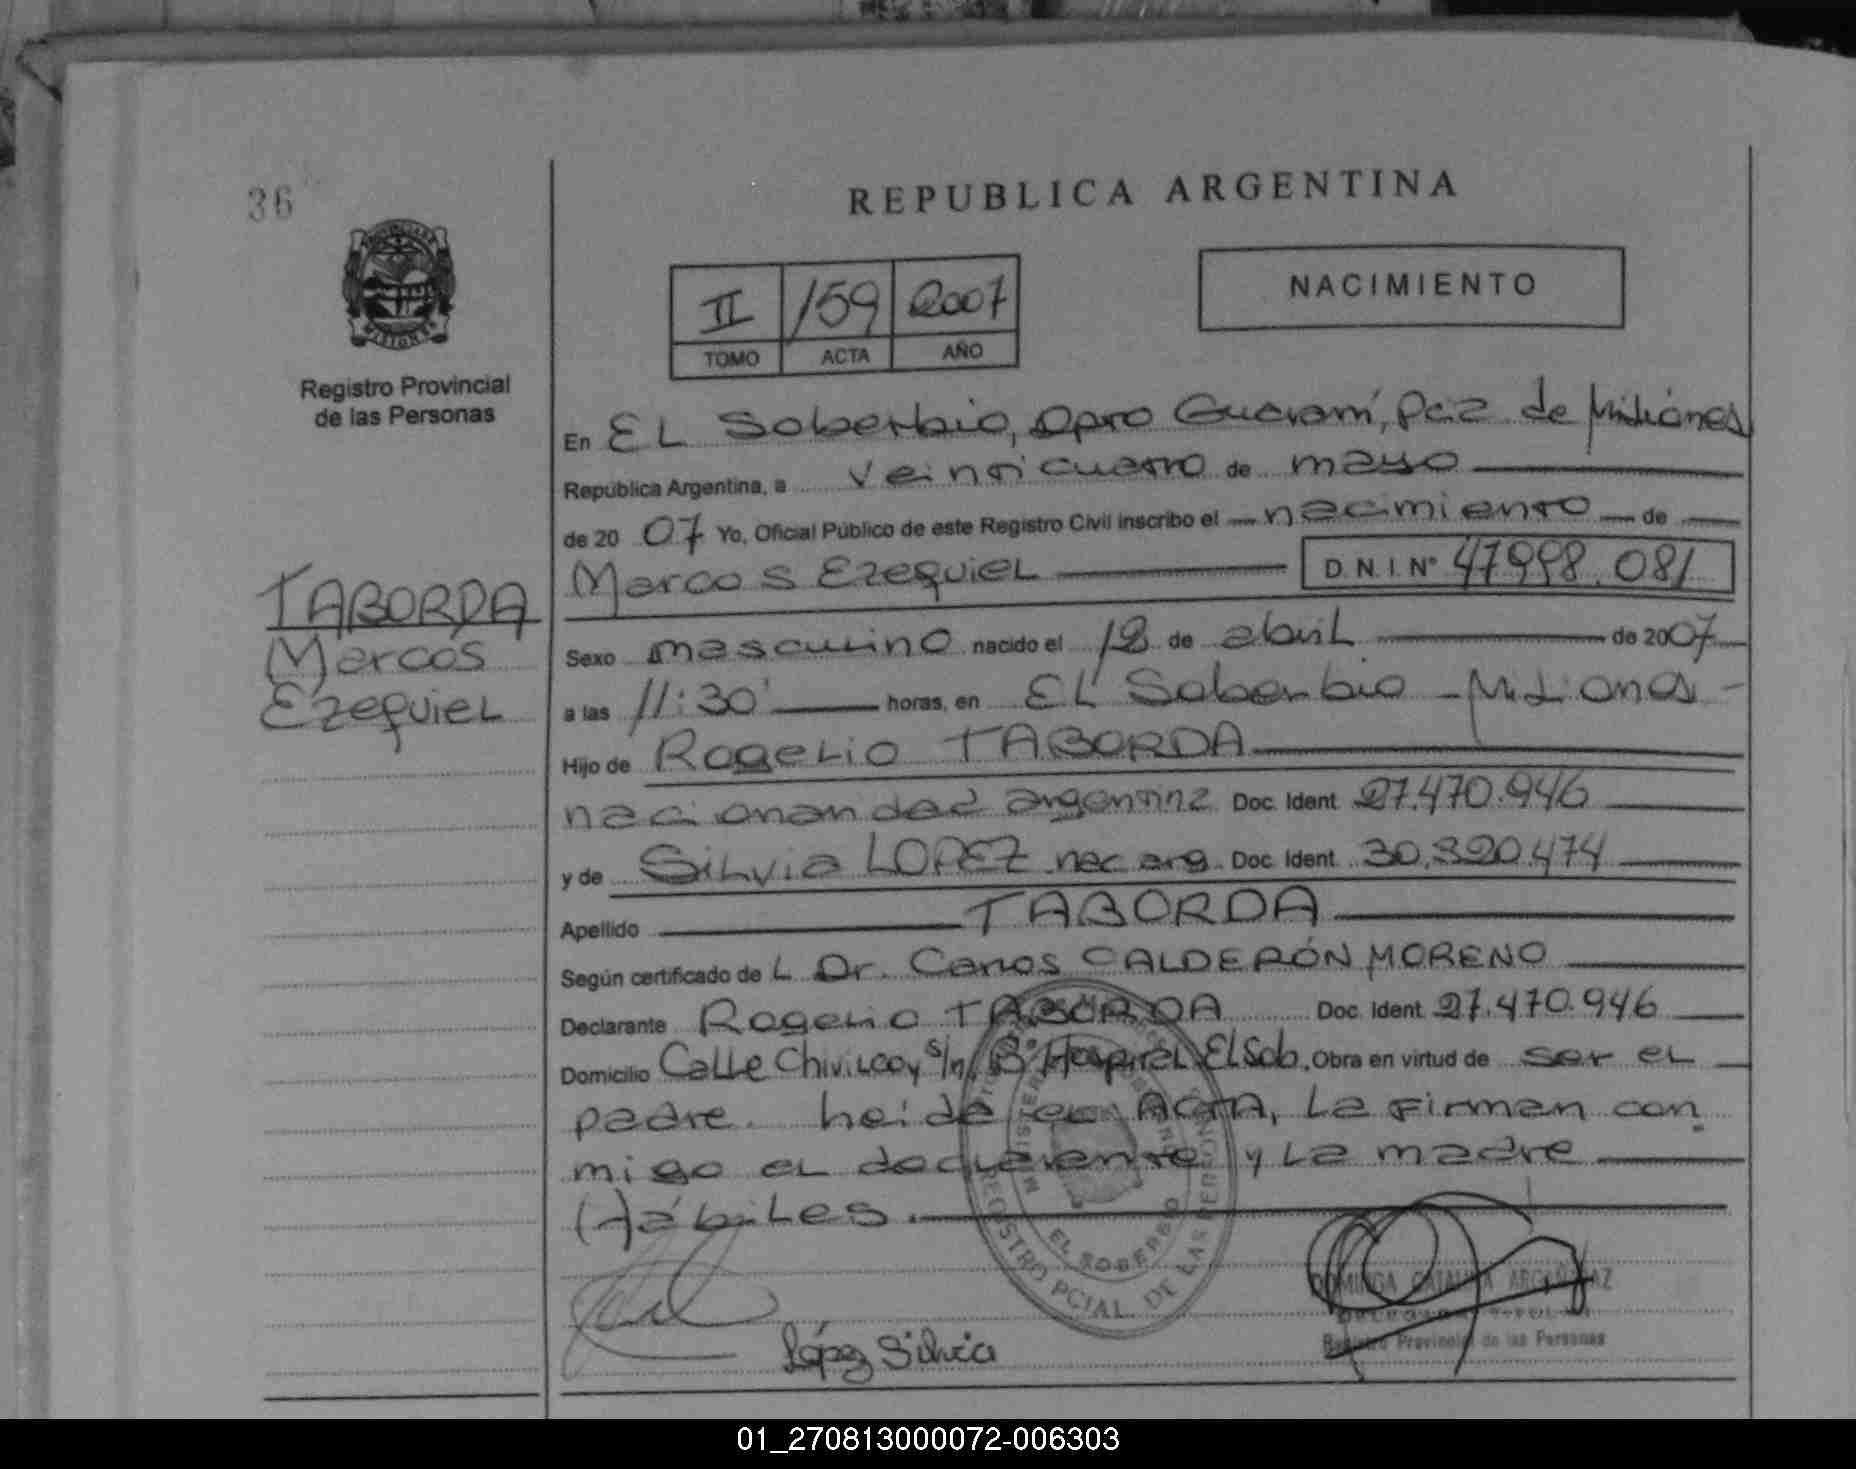 36
REPUBLICA ARGENTINA
PROVINCIA DE MISIONES
Registro Provincial
de las Personas
II 159 2007
TOMO ACTA AÑO
NACIMIENTO
En EL Soberbio, Dpto Guaraní, Pcia de Misiones
República Argentina, a veinticuatro de mayo
de 20 07 Yo, Oficial Público de este Registro Civil inscribo el nacimiento de
Marcos Ezequiel D.N.I. Nº 47998.081
TABORDA
Marcos
Ezequiel
Sexo masculino nacido el 12 de abril de 2007
a las 11:30' horas, en EL Soberbio - Misiones -
Hijo de Rogelio TABORDA
nacionalidad argentina Doc. Ident. 27.470.946
y de Silvia LOPEZ nac arg. Doc. Ident. 30.320.474
Apellido TABORDA
Según certificado de L Dr. Carlos CALDERÓN MORENO
Declarante Rogelio TABORDA Doc. Ident. 27.470.946
Domicilio Calle Chivilcoy s/n Bº Hospital El Sob. Obra en virtud de ser el
padre. Leida el ACTA, La Firman con
migo el declarante y La madre
Hábiles.
EL SOBERBIO
REGISTRO PCIAL. DE LAS PERSONAS
López Silvia
DOMINGA CATALINA
Registro Provincial de las Personas
01_270813000072-006303